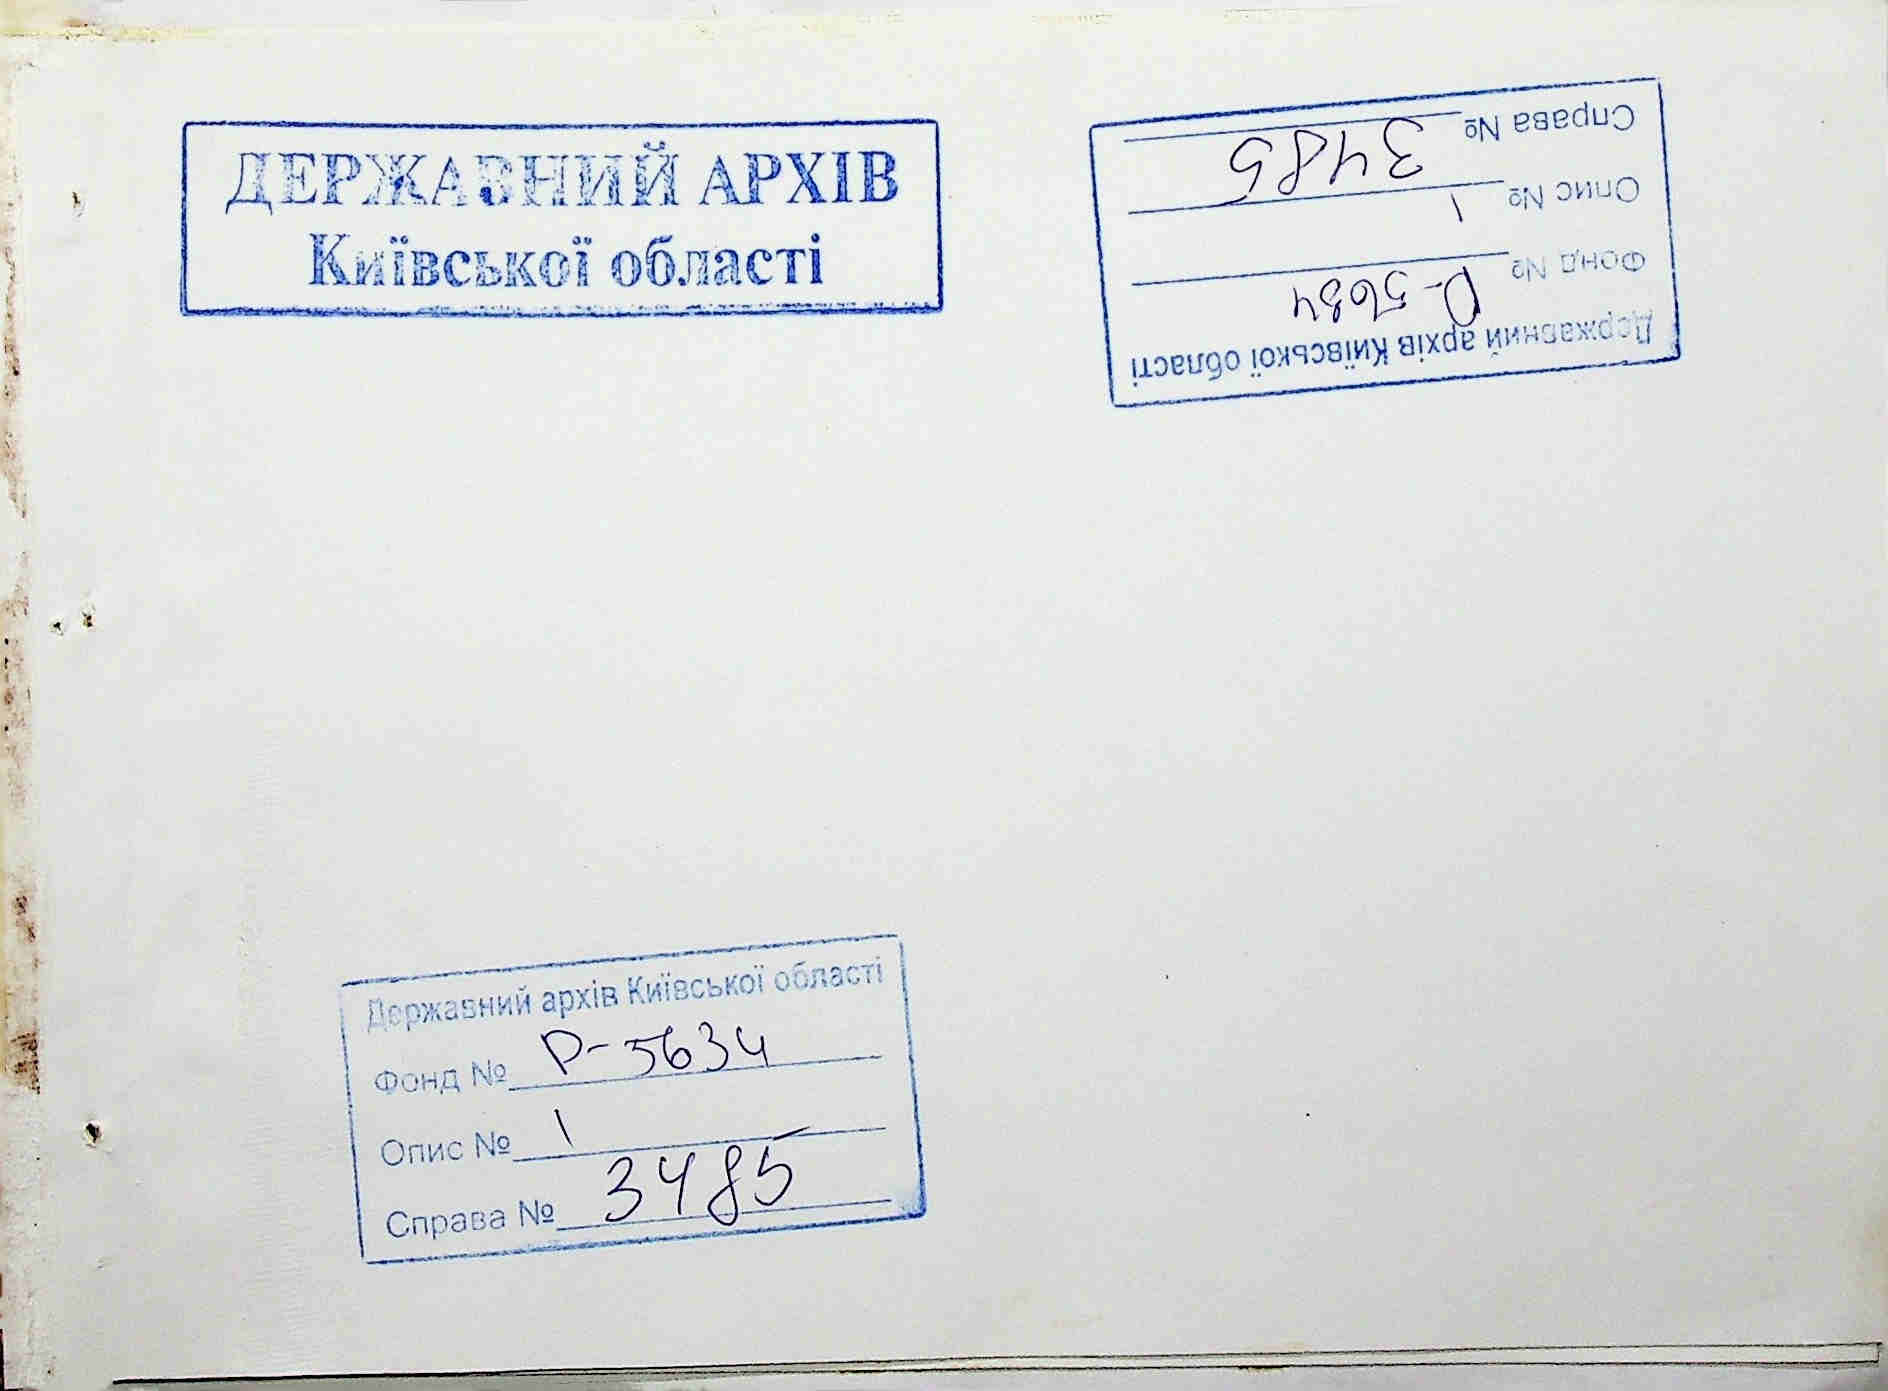 ДЕРЖАВНИЙ АРХІВ
Київської області
Державний архів Київської області
Фонд № Р-5634
Опис № 1
Справа № 3485
Державний архів Київської області
Фонд № Р-5634
Опис № 1
Справа № 3485